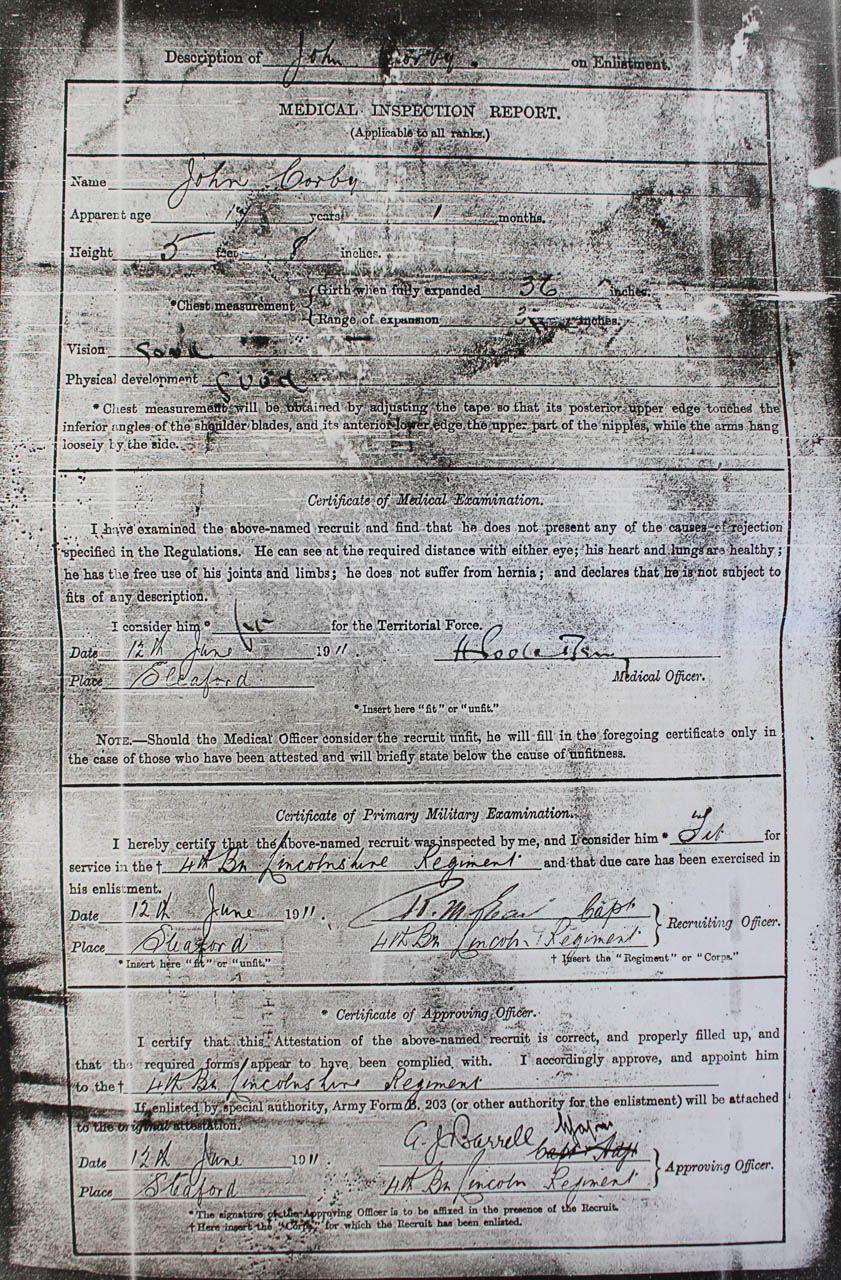 Description of John Corby. on Enlistment.
MEDICAL INSPECTION REPORT.
(Applicable to all ranks.)
Name John Corby
Apparent age years 1 months.
Height 5 feet 8 inches.
Girth when fully expanded 36 inches.
*Chest measurement
Range of expansion inches.
Vision Good
Physical development good
* Chest measurement will be obtained by adjusting the tape so that its posterior upper edge touches the
inferior angles of the shoulder blades, and its anterior lower edge the upper part of the nipples, while the arms hang
loosely by the side.
Certificate of Medical Examination.
I have examined the above-named recruit and find that he does not present any of the causes of rejection
specified in the Regulations. He can see at the required distance with either eye; his heart and lungs are healthy;
he has the free use of his joints and limbs; he does not suffer from hernia; and declares that he is not subject to
fits of any description.
I consider him* fit for the Territorial Force.
Date 12th June 1911.
Place Sleaford Medical Officer.
* Insert here "fit" or "unfit."
NOTE.—Should the Medical Officer consider the recruit unfit, he will fill in the foregoing certificate only in
the case of those who have been attested and will briefly state below the cause of unfitness.
Certificate of Primary Military Examination.
I hereby certify that the above-named recruit was inspected by me, and I consider him * Fit for
service in the † 4th Bn Lincolnshire Regiment and that due care has been exercised in
his enlistment.
Date 12th June 1911. Capt
Recruiting Officer.
Place Sleaford 4th Bn Lincoln Regiment
* Insert here "fit" or "unfit." † Insert the "Regiment" or "Corps."
* Certificate of Approving Officer.
I certify that this Attestation of the above-named recruit is correct, and properly filled up, and
that the required forms appear to have been complied with. I accordingly approve, and appoint him
to the † 4th Bn Lincolnshire Regiment
If enlisted by special authority, Army Form B. 203 (or other authority for the enlistment) will be attached
to the original attestation.
Major
Date 12th June 1911. G. J. Barrell Capt & Adjt
Approving Officer.
Place Sleaford 4th Bn Lincoln Regiment
* The signature of the Approving Officer is to be affixed in the presence of the Recruit.
† Here insert the "Corps" for which the Recruit has been enlisted.